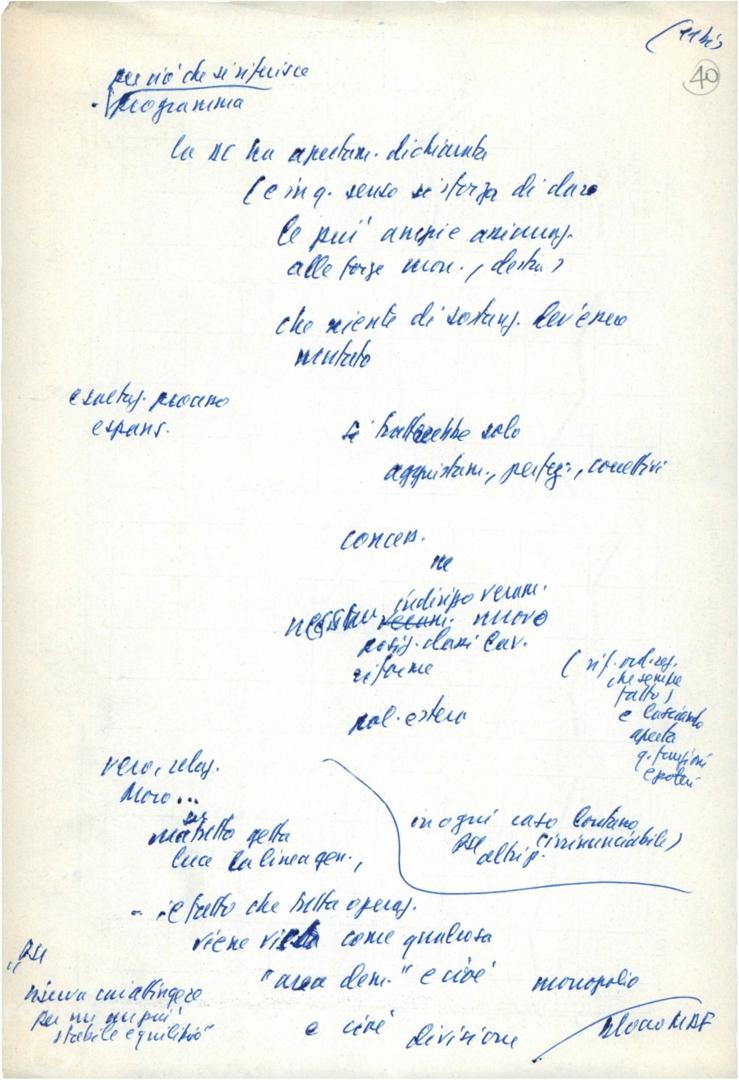 (11bis
40
per ciò che si riferisce
programma
la DC ha apertam. dichiarato
(e in q. senso si sforza di dare
le più ampie assicuraz.
alle forze mon., destra)
che niente di sostanz. dev'essere
mutato
esaltaz. piano
espans.
si tratterebbe solo
aggiustam., perfez., correttivi
concess.
ne
indirizzo veram.
nessun nuovo
posiz. classi lav.
riforme
(rif. ord. reg.
che sempre
fatto)
e lasciando
aperta
q. funzioni
e poteri
pol. estera
vero, relaz.
Moro...
su
tutto getta
luce la linea gen.,
in ogni caso lontano
PSI irrinunciabile)
altri p.
- il fatto che tutta operaz.
viene vista come qualcosa
"area dem." e cioè monopolio
e cioè divisione
"PSI
riserva cui attingere
per un più
stabile equilibrio"
blocco